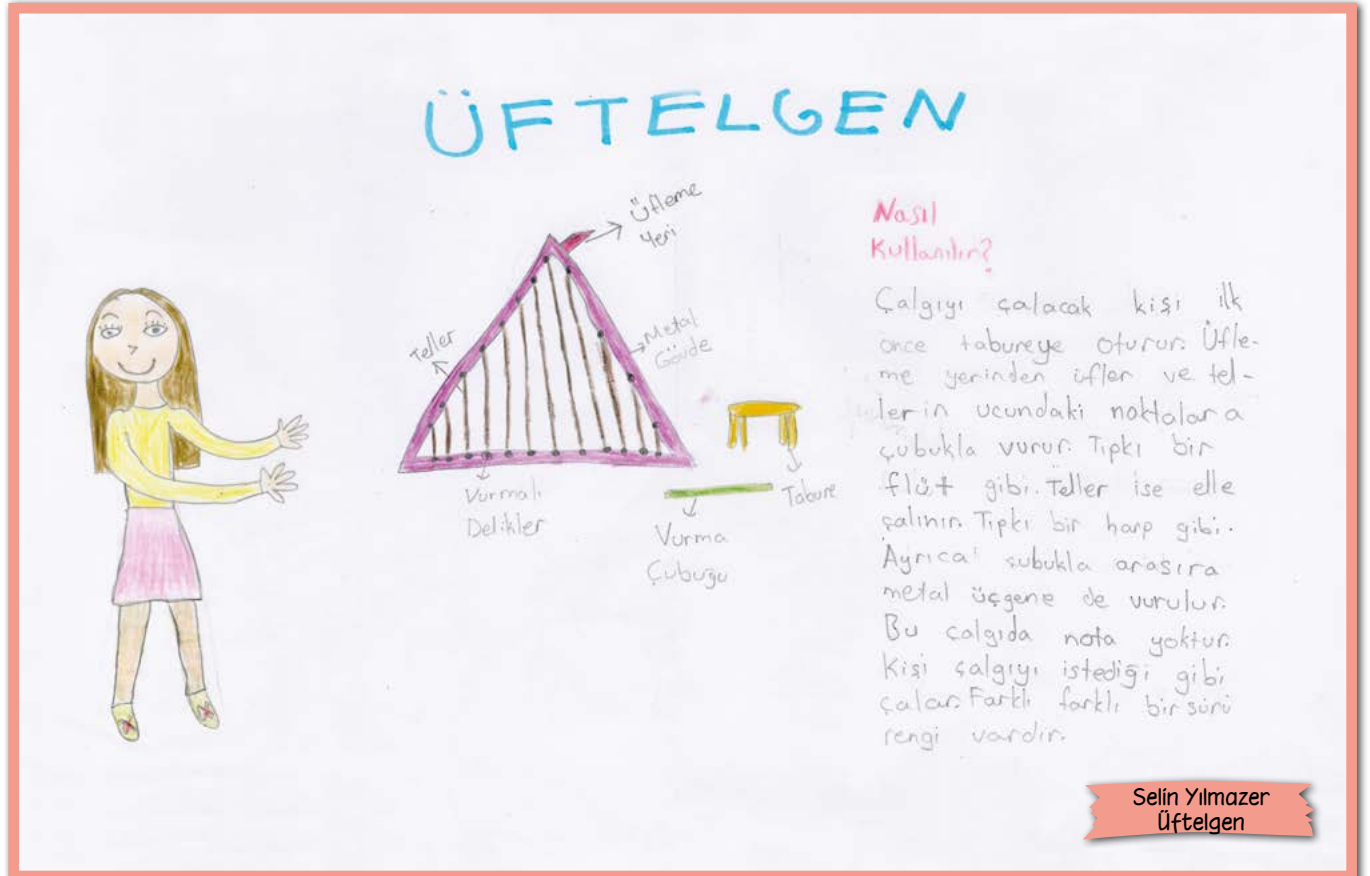 ÜFTELGEN
Üfleme
Yeri
Teller
Metal
Gövde
Vurmalı
Delikler
Tabure
Vurma
Çubuğu
Nasıl
Kullanılır?
Çalgıyı çalacak kişi ilk
önce tabureye oturur. Üfle-
me yerinden üfler ve tel-
lerin ucundaki noktalara
çubukla vurur. Tıpkı bir
flüt gibi. Teller ise elle
çalınır. Tıpkı bir harp gibi.
Ayrıca çubukla arasıra
metal üçgene de vurulur.
Bu çalgıda nota yoktur.
Kişi çalgıyı istediği gibi
çalar. Farklı farklı bir sürü
rengi vardır.
Selin Yılmazer
Üftelgen